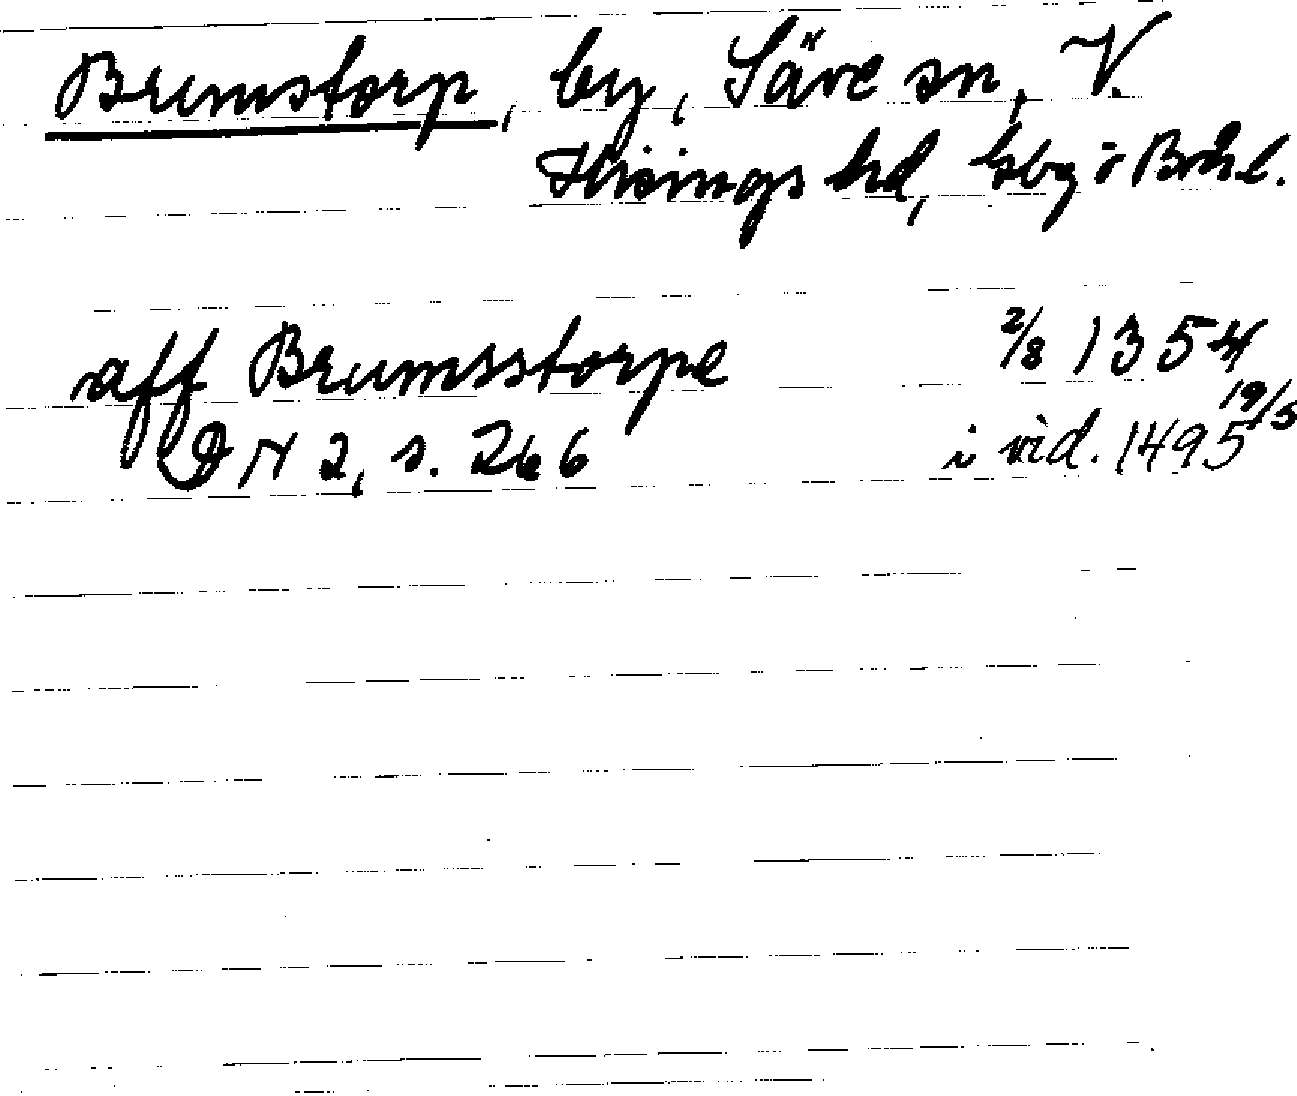 Brumstorp, by, Säve sn, V.
Hisings hd, Gbg i Bohl.
aff Brumsstorpe 2/8 1354
DN 2, s. 266 i vid. 1495 19/5